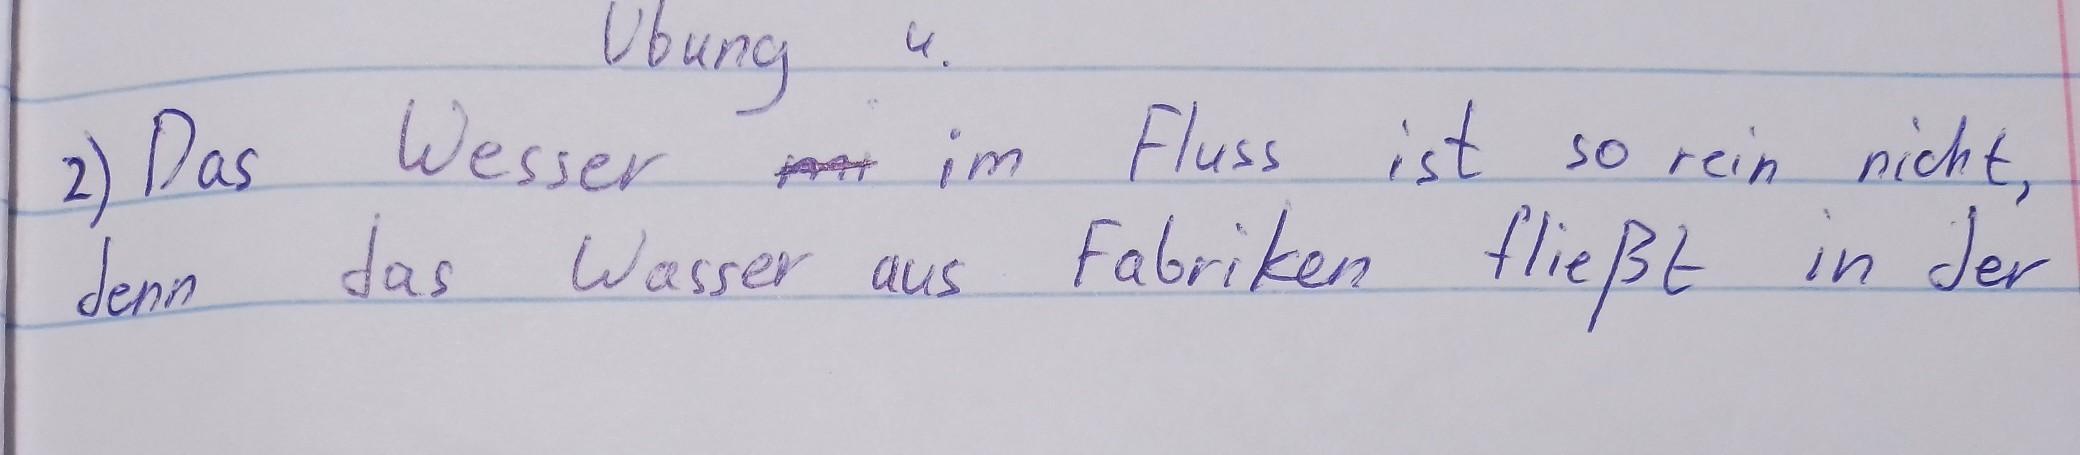 Übung 4.
2) Das Wesser im Fluss ist so rein nicht,
denn das Wasser aus Fabriken fließt in der